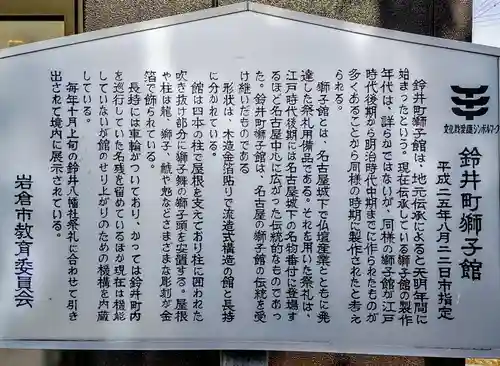 文化財愛護シンボルマーク
鈴井町獅子館
平成二五年八月二二日市指定
鈴井町獅子館は、地元伝承によると天明年間に
始まったという。現在伝承している獅子館の製作
年代は、詳らかではないが、同様の獅子館が江戸
時代後期から明治時代中期までに作られたものが
多くあることから同様の時期に製作されたと考え
られる。
獅子館とは、名古屋城下で仏壇産業とともに発
達した祭礼用備品である。それを用いた祭礼は、
江戸時代後期には名古屋城下の名物番付に登場す
るほど名古屋中心に広がった伝統的なものであっ
た。鈴井町獅子館は、名古屋の獅子館の伝統を受
け継いだものである
形状は、木造金箔貼りで流造式構造の館と長持
に分かれている。
館は四本の柱で屋根を支えており柱に囲われた
吹き抜け部分に獅子舞の獅子頭を安置する。屋根
や柱は龍、獅子、鯱や兎などさまざまな彫刻が金
箔で飾られている。
長持には車輪がついており、かつては鈴井町内
を巡行していた名残を留めているほか現在は機能
していないが館のせり上がりのための機構を内蔵
している。
毎年十月上旬の鈴井八幡社祭礼に合わせて引き
出されて境内に展示されている。
岩倉市教育委員会